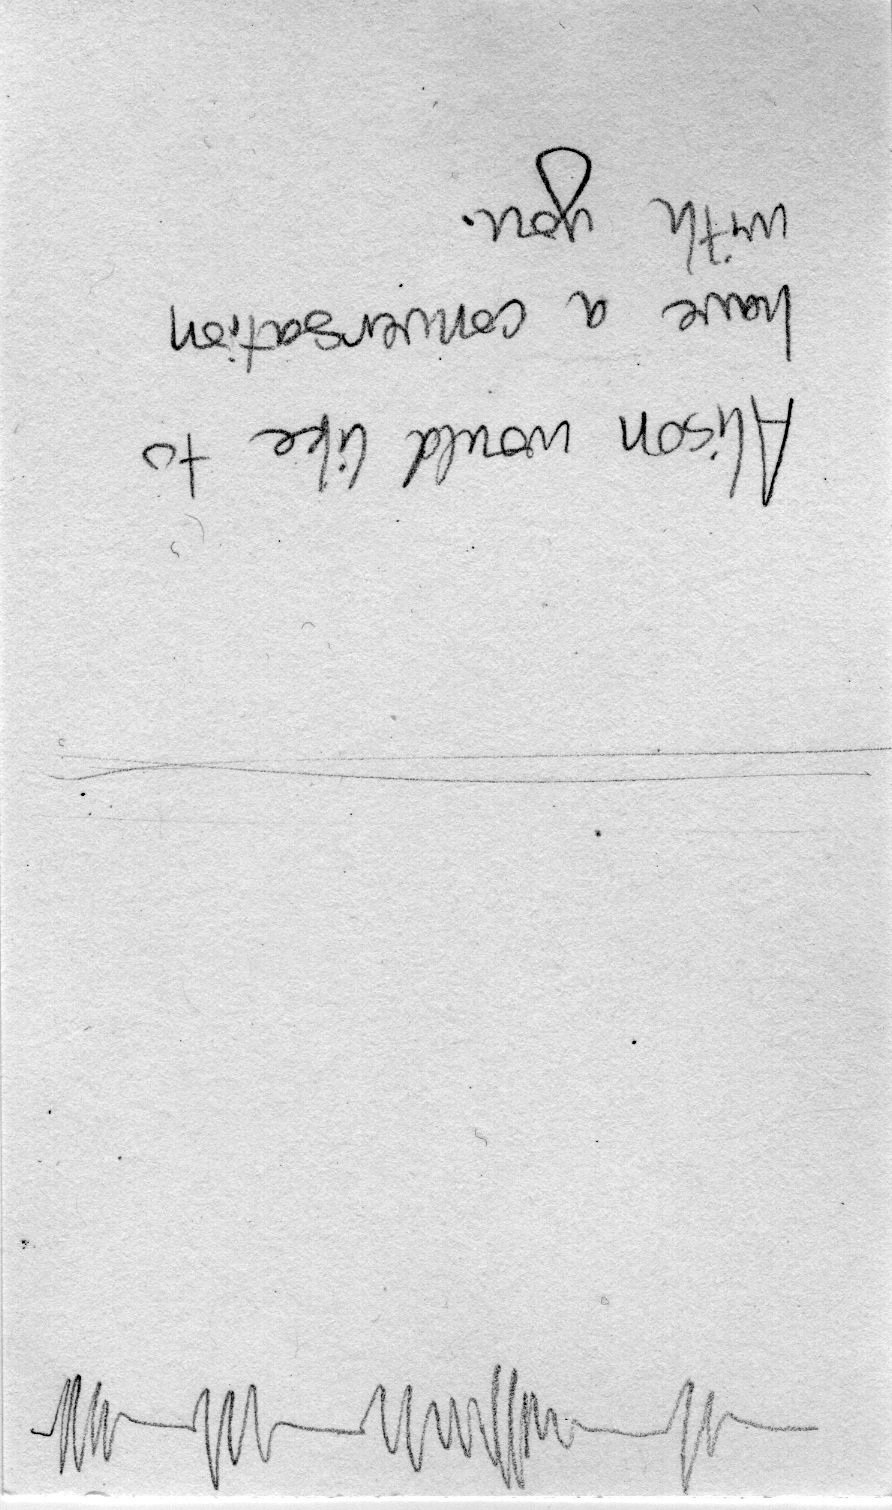 Alison would like to
have a conversation
with you.